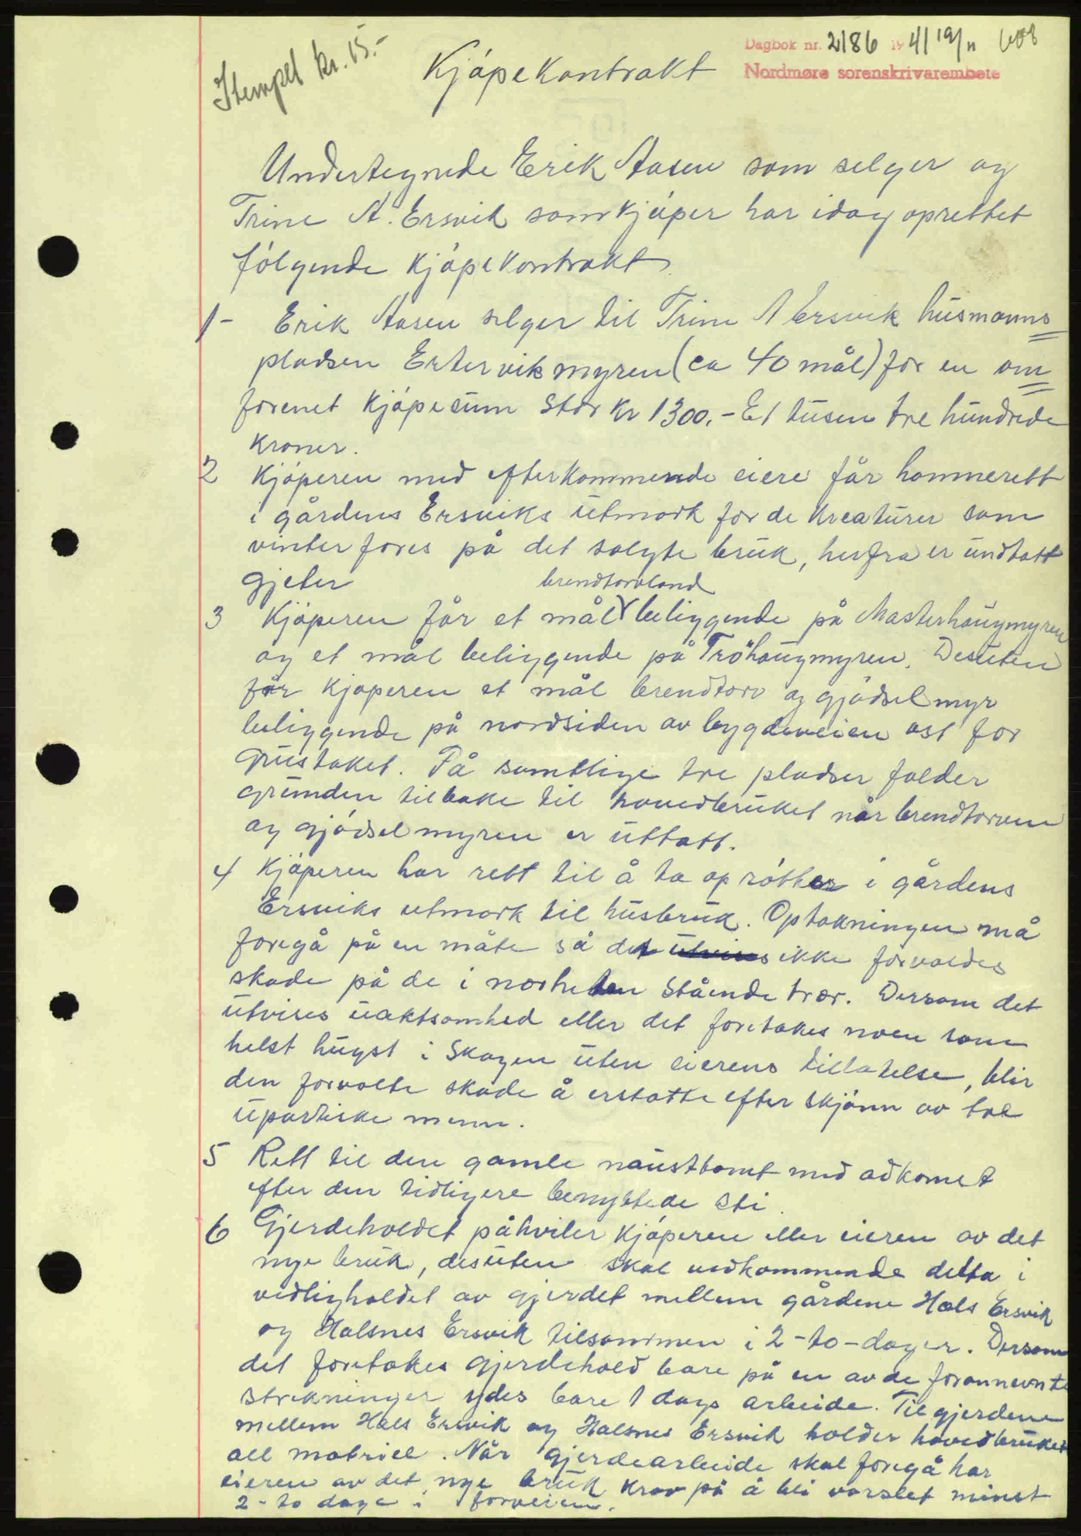 Stempel kr. 15.-
Dagbok nr. 2186 19 41 19/11 608
Nordmøre sorenskrivarembete
Kjøpekontrakt
Undertegnede Erik Aasen som selger og
Trine A. Ersvik som kjøper har idag oprettet
følgende kjøpekontrakt
1- Erik Aasen selger til Trine A Ersvik husmanns
pladsen Estervikmyren (ca 40 mål) for en om
forenet kjøpesum stor kr 1300.- Et tusen tre hundrede
kroner.
2 Kjøperen med efterkommende eiere får hamnerett
i gårdens Ersviks utmark for de kreaturer som
vinterfores på det solgte bruk, herfra er undtatt
gjeter
brendtorvland
3 Kjøperen får et mål beliggende på Masterhaugmyren
og et mål beliggende på Trøhaugmyren. Desuten
får kjøperen et mål brendtorv og gjødselmyr
beliggende på nordsiden av bygdeveien øst for
grustaket. På samtlige tre pladser falder
grunden tilbake til hovedbruket når brendtorven
og gjødselmyren er uttatt.
4 Kjøperen har rett til å ta op røtter i gårdens
Ersviks utmark til husbruk. Optakningen må
foregå på en måte så det ikke forvoldes
skade på de i nærheten stående trær. Dersom det
utvises uaktsomhed eller det foretakes noen som
helst hugst i skogen uten eierens tillatelse, blir
den forvolte skade å erstatte efter skjønn av tre
upartiske menn.
5 Rett til den gamle nausttomt med adkomst
efter den tidligere benyttede sti.
6 Gjerdeholdet påhviler kjøperen eller eieren av det
nye bruk, desuten skal vedkommende delta i
vedligholdet av gjerdet mellem gårdene Hals Ersvik
og Halsnes Ersvik tilsammen i 2-to-dager. Dersom
det foretakes gjerdehold bare på en av de forannevnte
strekninger ydes bare 1 dags arbeide. Til gjerdene
mellem Hals Ersvik og Halsnes Ersvik holder hovedbruket
all matriell. Når gjerdearbeide skal foregå har
eieren av det nye bruk krav på å bli varslet minst
2-to dage i forveien.